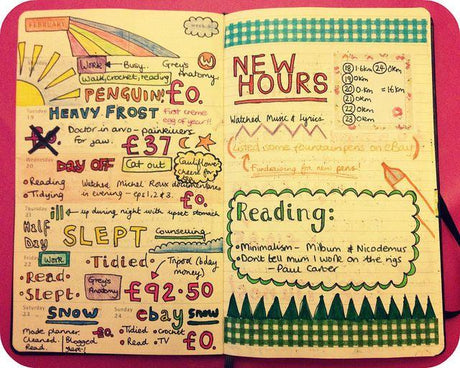 FEBRUARY
Week 8
Work Busy. Grey's
Walk, crochet, reading Anatomy
W
PENGUIN! £0.
Tuesday
19
HEAVY FROST first creme
egg of year!!
Doctor in arvo - painkillers
for jaw.
£37
Wednesday
20
DAY OFF Cat out Cauliflower
cheese for
Reading
Tidying
Watched Michel Roux documentaries
in evening - eps 1, 2 & 3.
£0.
Thursday
21
ill - up during night with upset stomach
Half
Day
SLEPT
Counselling
Friday
22
Work
Tidied
Tripod (bday
money)
Read
Slept
Grey's
Anatomy
£92.50
Saturday
23
SNOW
Sunday
24
ebay SNOW
Made planner
Cleaned. Blogged
Read.
£0.
Tidied Crochet
Read TV
£0
NEW
HOURS
18 1.6km 24 0km
19 0km
20 0km = 16km
21 0km
22 0km
23 0km
Watched Music & Lyrics
Listed some fountain pens on eBay
Fundraising for new pens
Reading:
Minimalism - Milburn & Nicodemus
Don't tell mum I work on the rigs
- Paul Carter